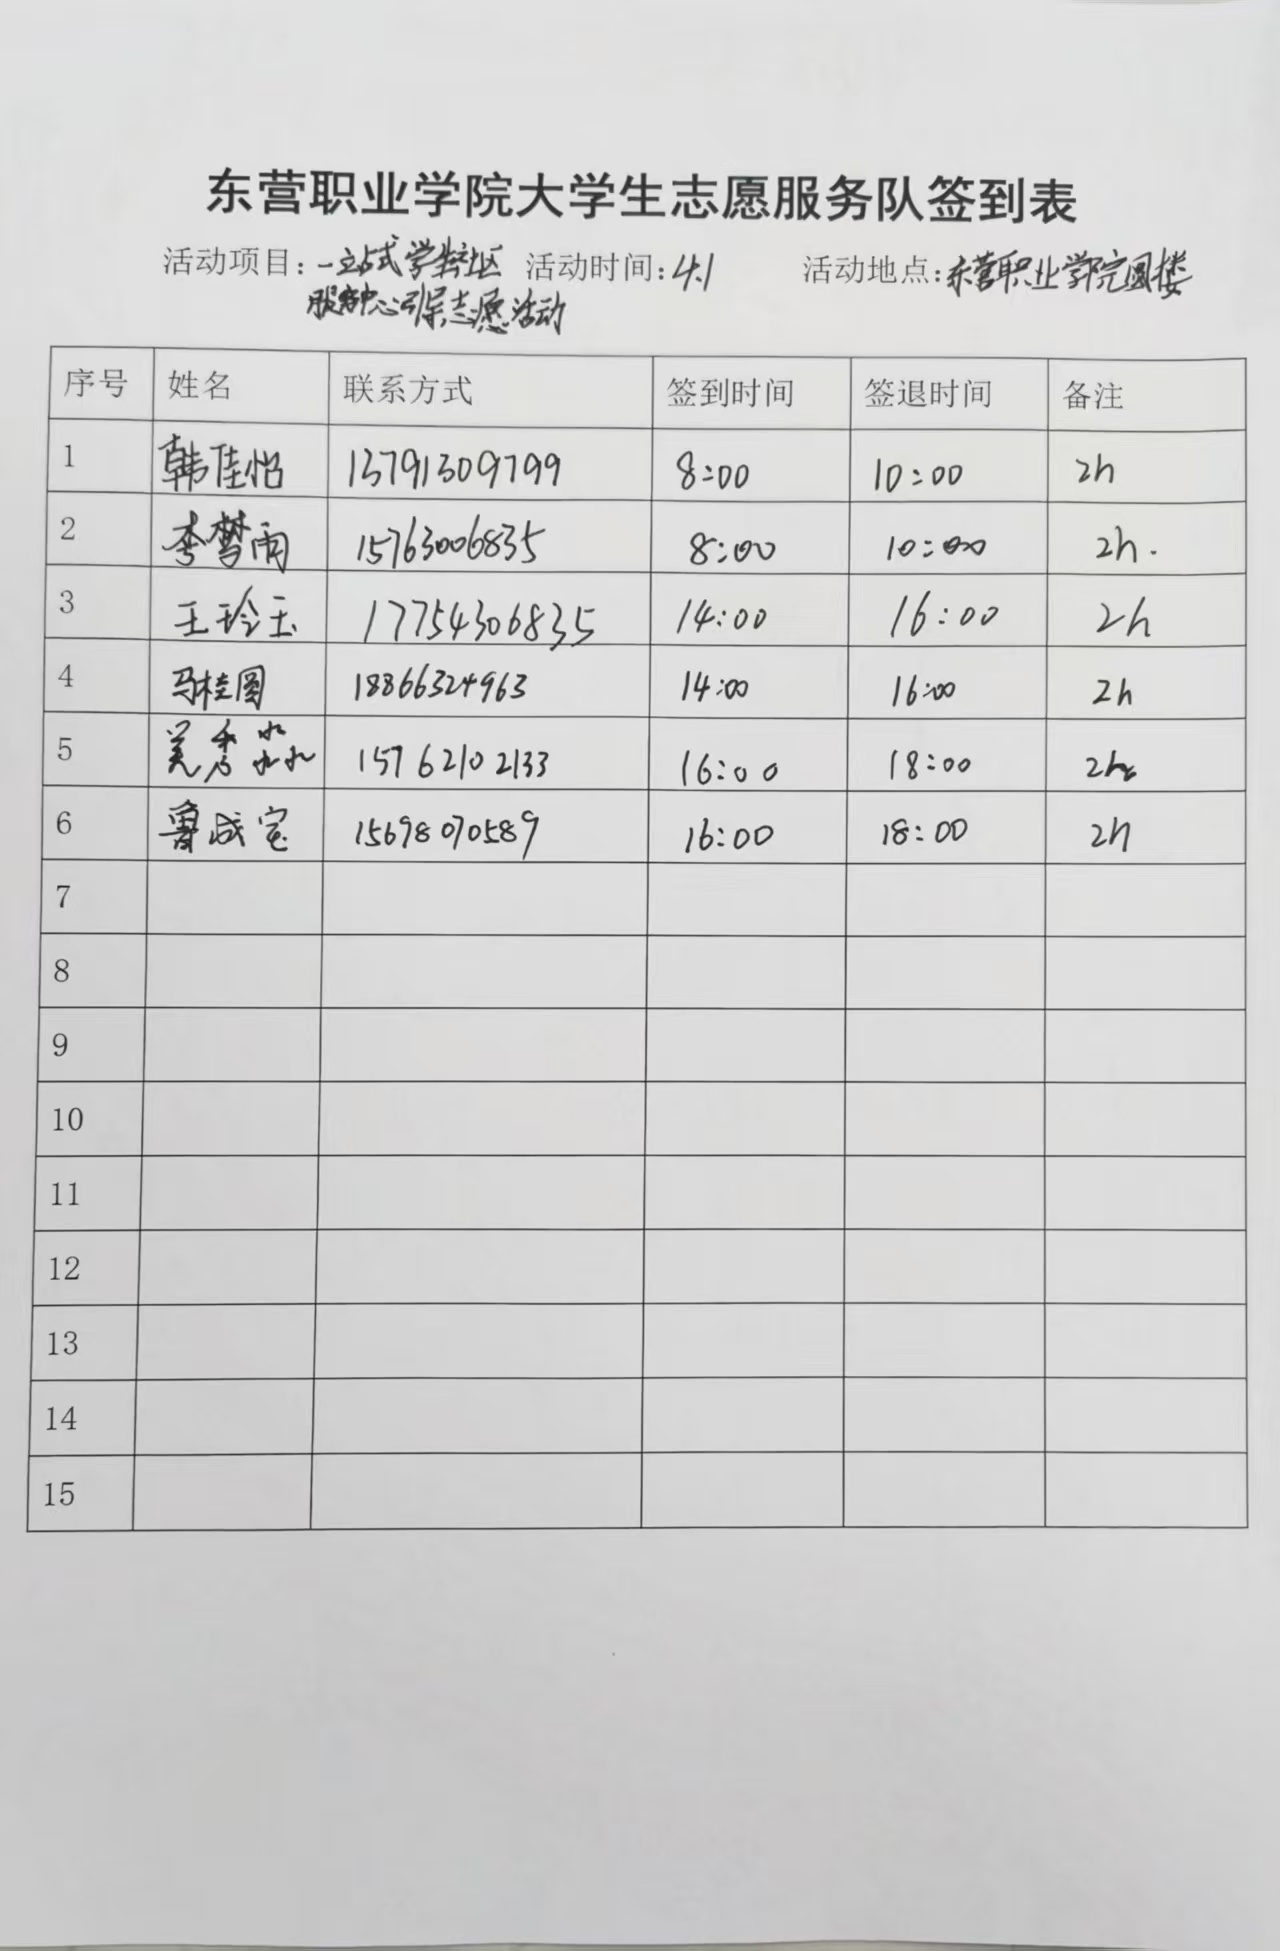 东营职业学院大学生志愿服务队签到表
活动项目：一站式学生社区 活动时间：4.1 活动地点：东营职业学院圆楼
服务中心引导志愿活动
序号 姓名 联系方式 签到时间 签退时间 备注
1 韩佳怡 13791309799 8:00 10:00 2h
2 李梦雨 15763006835 8:00 10:00 2h.
3 王玲玉 17754306835 14:00 16:00 2h
4 马桂圆 18866324963 14:00 16:00 2h
5 秀淼 15762102133 16:00 18:00 2h
6 鲁成宝 15698070589 16:00 18:00 2h
7
8
9
10
11
12
13
14
15